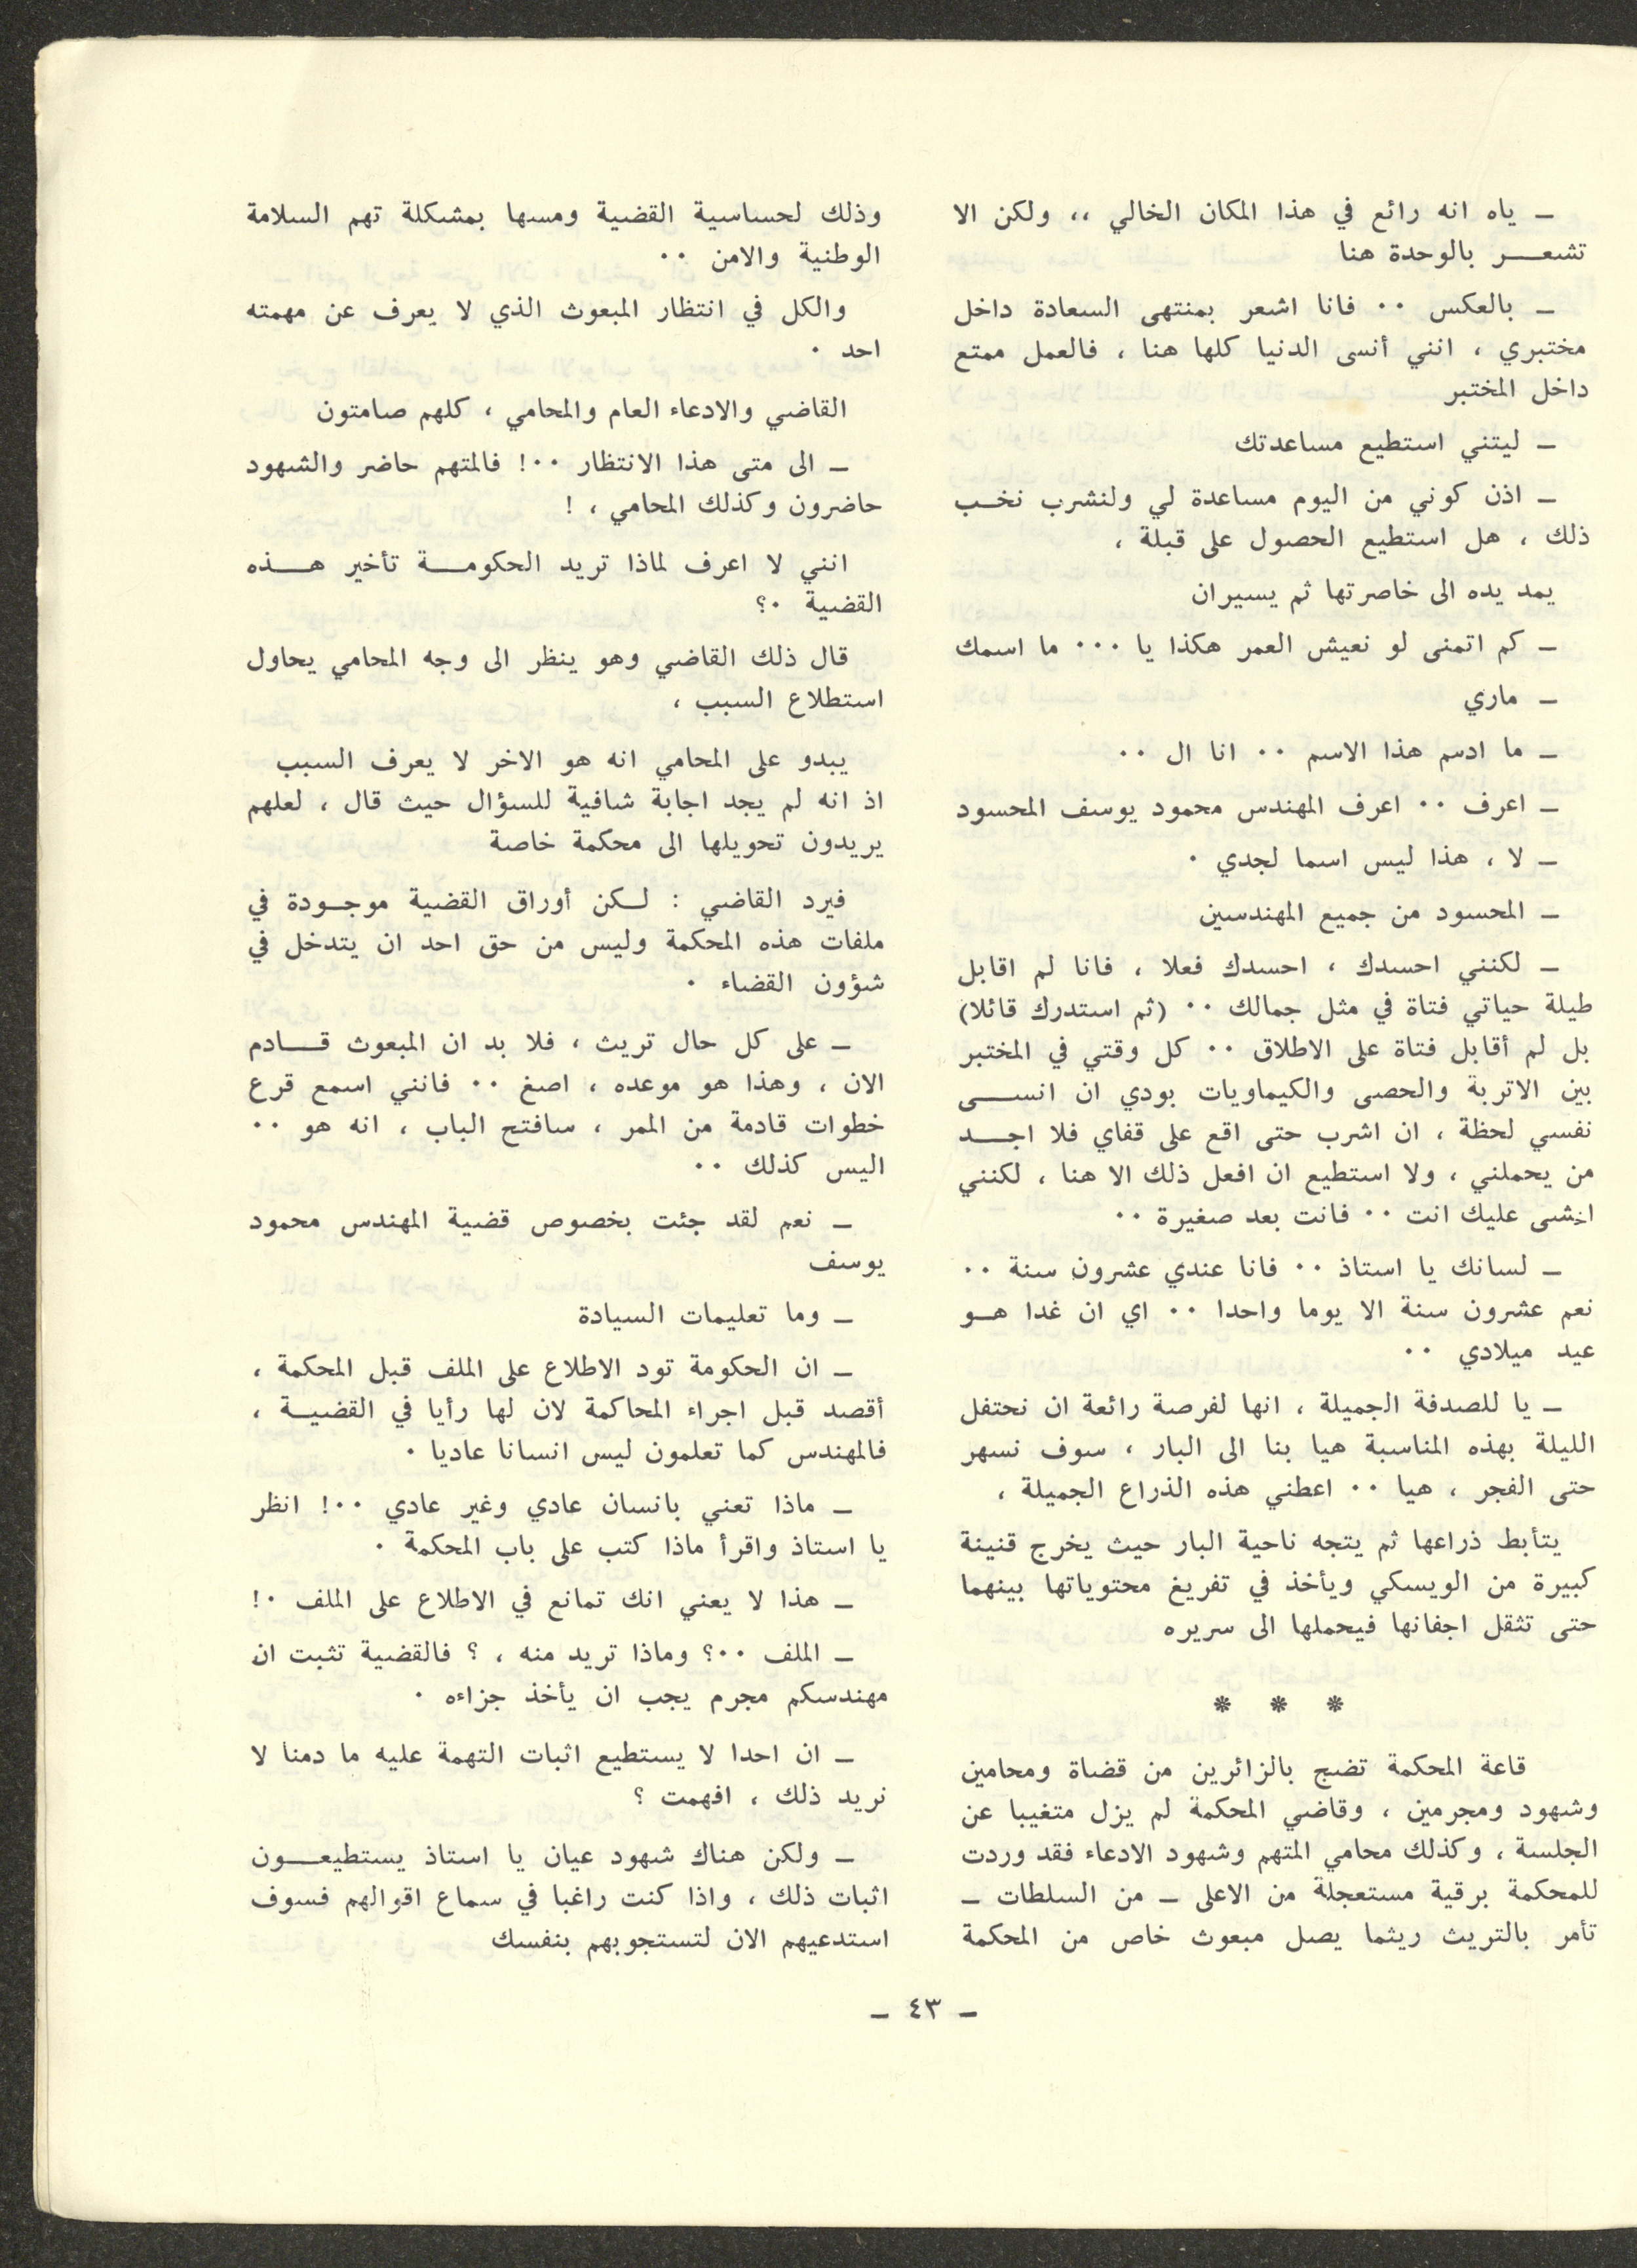 ـ ياه انه رائع في هذا المكان الخالي ،، ولكن الا
تشعر بالوحدة هنا
ـ بالعكس ٠٠ فانا اشعر بمنتهى السعادة داخل
مختبري ، انني أنسى الدنيا كلها هنا ، فالعمل ممتع
داخل المختبر
ـ ليتني استطيع مساعدتك
ـ اذن كوني من اليوم مساعدة لي ولنشرب نخب
ذلك ، هل استطيع الحصول على قبلة ،
يمد يده الى خاصرتها ثم يسيران
ـ كم اتمنى لو نعيش العمر هكذا يا ٠٠٠ ما اسمك
ـ ماري
ـ ما ادسم هذا الاسم ٠٠ انا ال ٠٠
ـ اعرف ٠٠ اعرف المهندس محمود يوسف المحسود
ـ لا ، هذا ليس اسما لجدي ٠
ـ المحسود من جميع المهندسين
ـ لكنني احسدك ، احسدك فعلا ، فانا لم اقابل
طيلة حياتي فتاة في مثل جمالك ٠٠ (ثم استدرك قائلا)
بل لم أقابل فتاة على الاطلاق ٠٠ كل وقتي في المختبر
بين الاتربة والحصى والكيماويات بودي ان انسى
نفسي لحظة ، ان اشرب حتى اقع على قفاي فلا اجد
من يحملني ، ولا استطيع ان افعل ذلك الا هنا ، لكنني
اخشى عليك انت ٠٠ فانت بعد صغيرة ٠٠
ـ لسانك يا استاذ ٠٠ فانا عندي عشرون سنة ٠٠
نعم عشرون سنة الا يوما واحدا ٠٠ اي ان غدا هو
عيد ميلادي ٠٠
ـ يا للصدفة الجميلة ، انها لفرصة رائعة ان نحتفل
الليلة بهذه المناسبة هيا بنا الى البار ، سوف نسهر
حتى الفجر ، هيا ٠٠ اعطني هذه الذراع الجميلة ،
يتأبط ذراعها ثم يتجه ناحية البار حيث يخرج قنينة
كبيرة من الويسكي ويأخذ في تفريغ محتوياتها بينهما
حتى تثقل اجفانها فيحملها الى سريره
* * *
قاعة المحكمة تضج بالزائرين من قضاة ومحامين
وشهود ومجرمين ، وقاضي المحكمة لم يزل متغيبا عن
الجلسة ، وكذلك محامي المتهم وشهود الادعاء فقد وردت
للمحكمة برقية مستعجلة من الاعلى ـ من السلطات ـ
تأمر بالتريث ريثما يصل مبعوث خاص من المحكمة
وذلك لحساسية القضية ومسها بمشكلة تهم السلامة
الوطنية والامن ٠٠
والكل في انتظار المبعوث الذي لا يعرف عن مهمته
احد ٠
القاضي والادعاء العام والمحامي ، كلهم صامتون
ـ الى متى هذا الانتظار ٠٠! فالمتهم حاضر والشهود
حاضرون وكذلك المحامي ، !
انني لا اعرف لماذا تريد الحكومة تأخير هذه
القضية ٠؟
قال ذلك القاضي وهو ينظر الى وجه المحامي يحاول
استطلاع السبب ،
يبدو على المحامي انه هو الاخر لا يعرف السبب
اذ انه لم يجد اجابة شافية للسؤال حيث قال ، لعلهم
يريدون تحويلها الى محكمة خاصة
فيرد القاضي : لكن أوراق القضية موجودة في
ملفات هذه المحكمة وليس من حق احد ان يتدخل في
شؤون القضاء ٠
ـ على كل حال تريث ، فلا بد ان المبعوث قادم
الان ، وهذا هو موعده ، اصغ ٠٠ فانني اسمع قرع
خطوات قادمة من الممر ، سافتح الباب ، انه هو ٠٠
اليس كذلك ٠٠
ـ نعم لقد جئت بخصوص قضية المهندس محمود
يوسف
ـ وما تعليمات السيادة
ـ ان الحكومة تود الاطلاع على الملف قبل المحكمة ،
أقصد قبل اجراء المحاكمة لان لها رأيا في القضية ،
فالمهندس كما تعلمون ليس انسانا عاديا ٠
ـ ماذا تعني بانسان عادي وغير عادي ٠٠! انظر
يا استاذ واقرأ ماذا كتب على باب المحكمة ٠
ـ هذا لا يعني انك تمانع في الاطلاع على الملف ٠!
ـ الملف ٠٠؟ وماذا تريد منه ، ؟ فالقضية تثبت ان
مهندسكم مجرم يجب ان يأخذ جزاءه ٠
ـ ان احدا لا يستطيع اثبات التهمة عليه ما دمنا لا
نريد ذلك ، افهمت ؟
ـ ولكن هناك شهود عيان يا استاذ يستطيعون
اثبات ذلك ، واذا كنت راغبا في سماع اقوالهم فسوف
استدعيهم الان لتستجوبهم بنفسك
ـ ٤٣ ـ